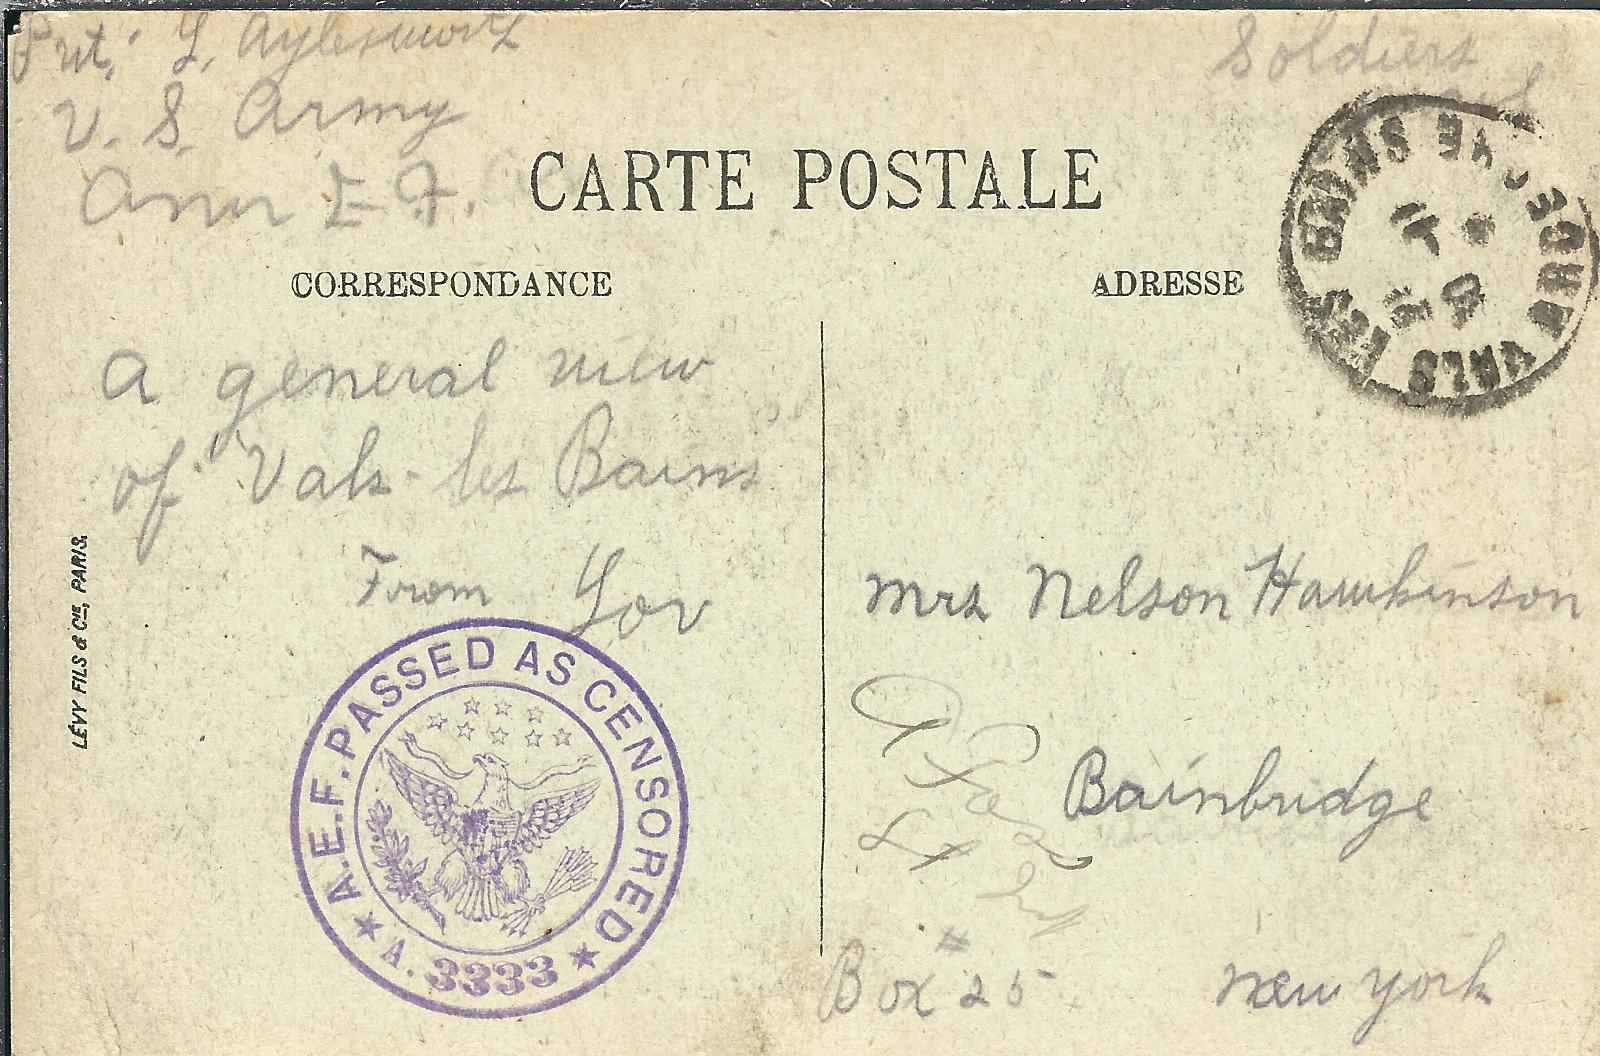 Pvt. L. Aylesworth
U. S. Army
Amer E. F.
Soldiers
CARTE POSTALE
CORRESPONDANCE
ADRESSE
VALS LES BAINS
ARDECHE
A general view
of "Vals-les Bains"
From Lov
LÉVY FILS & Cie, PARIS.
A.E.F. PASSED AS CENSORED
A. 3333
Mrs Nelson Hawkinson
Bainbridge
Box # 25 New York